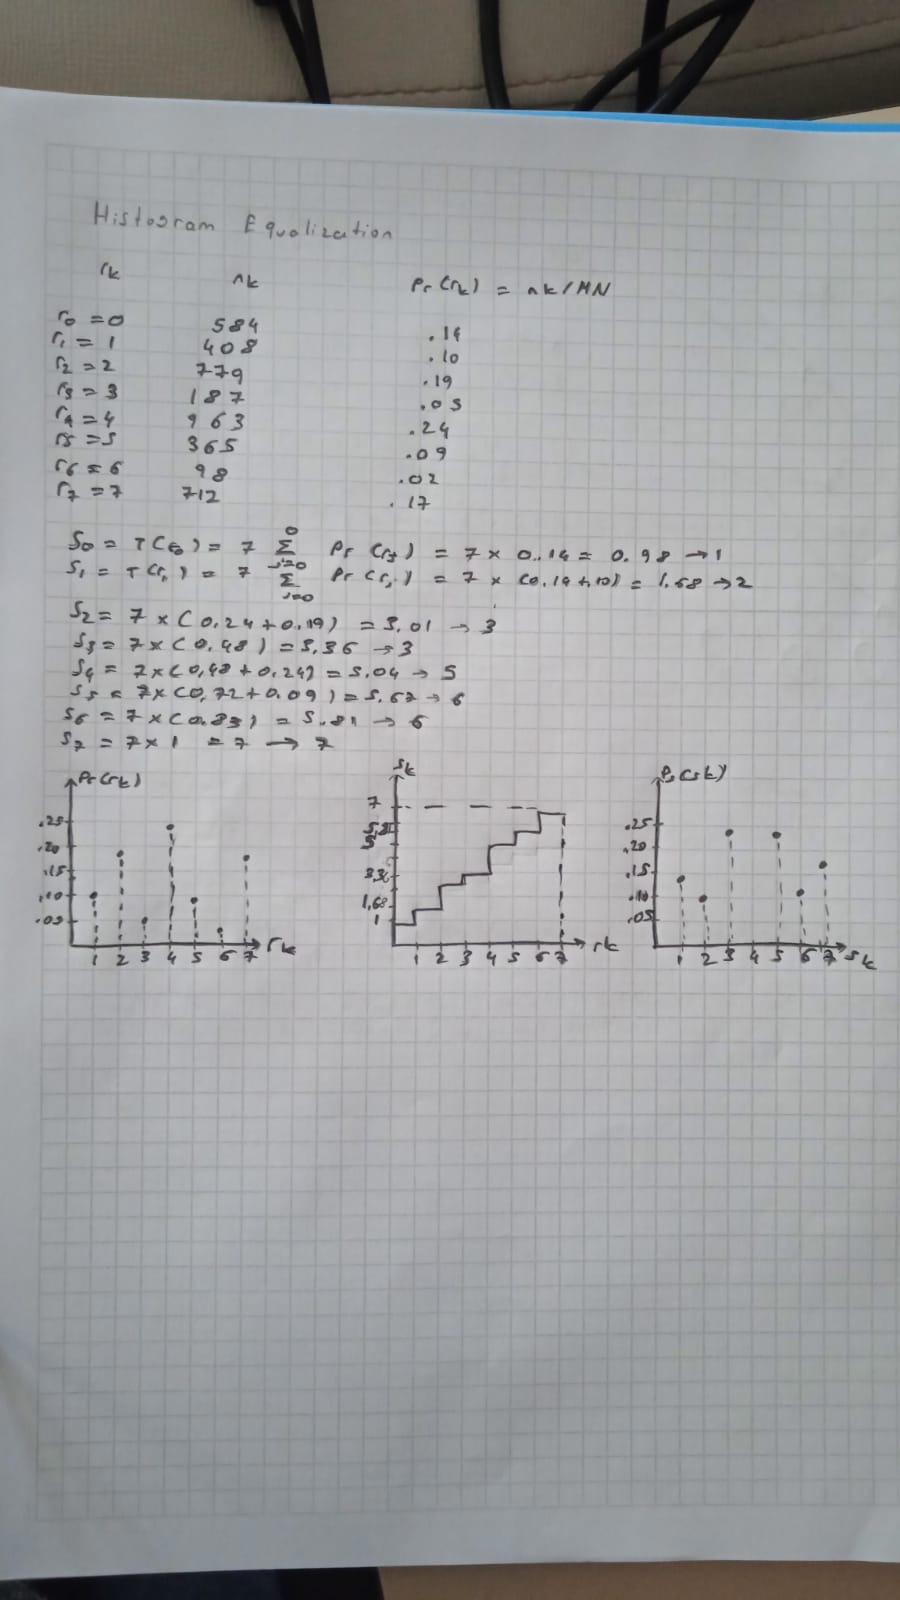 Histogram Equalization
rk nk Pr(rk) = nk/MN
r0 = 0 584 .14
r1 = 1 408 .10
r2 = 2 779 .19
r3 = 3 187 .05
r4 = 4 963 .24
r5 = 5 365 .09
r6 = 6 98 .02
r7 = 7 712 .17
S0 = T(r0) = 7 Σ j=0 0 Pr(rj) = 7 x 0.14 = 0.98 → 1
S1 = T(r1) = 7 Σ j=0 Pr(rj) = 7 x (0.14+,10) = 1.68 → 2
S2 = 7 x (0,24+0.19) = 3,01 → 3
S3 = 7x(0,48) = 3,36 → 3
S4 = 7x(0,48+0,24) = 5,04 → 5
S5 = 7x(0,72+0.09) = 5.67 → 6
S6 = 7x(0.83) = 5.81 → 6
S7 = 7x1 = 7 → 7
Pr(rk)
.25
.20
.15
.10
.05
1 2 3 4 5 6 7 rk
Sk
7
3,36
1,68
1
1 2 3 4 5 6 7 rk
Ps(sk)
.25
.20
.15
.10
.05
1 2 3 4 5 6 7 Sk